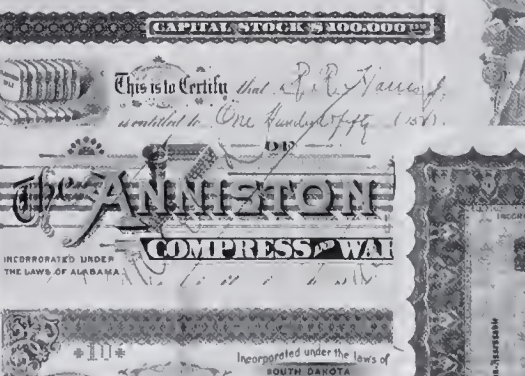 CAPITAL STOCK $100.000
This is to Certify that
is entitled to One Hundred fifty (150)
OF
The ANNISTON
COMPRESS AND WAR
INCORPORATED UNDER
THE LAWS OF ALABAMA.
INCOR
10
Incorporated under the laws of
SOUTH DAKOTA